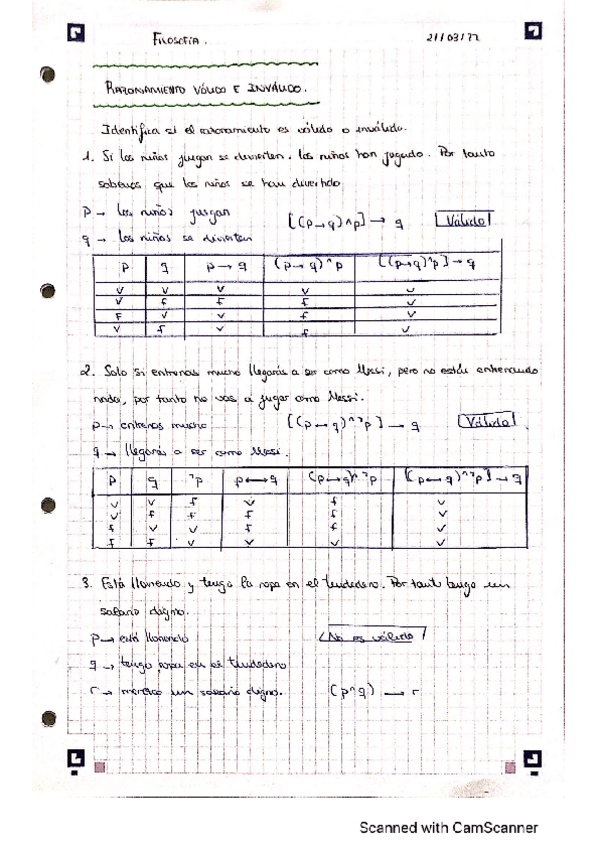 FILOSOFÍA.
21/03/22
RAZONAMIENTO VÁLIDO E INVÁLIDO.
Identifica si el razonamiento es válido o inválido.
1. Si los niños juegan se divierten. los niños han jugado. Por tanto
sabemos que los niños se han divertido
p → los niños juegan
[(p→q)^p] → q
Válido
q → los niños se divierten
p q p → q (p→q)^p [(p→q)^p] → q
v v v v v
v f f f v
F v v f v
v f f
v
2. Solo si entrenas mucho llegarás a ser como Messi, pero no estás entrenando
nada, por tanto no vas a jugar como Messi.
p → entrenas mucho
[(p → q)^¬p] → q
Válido
q → llegarás a ser como Messi.
p q ¬p p ↔ q (p→q)^¬p [(p→q)^¬p] → q
v v f v f v
v f f f f v
f v v f f v
f f v v v v
3. Está lloviendo y tengo la ropa en el tendedero. Por tanto tengo un
salario digno.
p → está lloviendo
No es válido
q → tengo ropa en el tendedero
r → merezco un salario digno.
(p^q) → r
Scanned with CamScanner